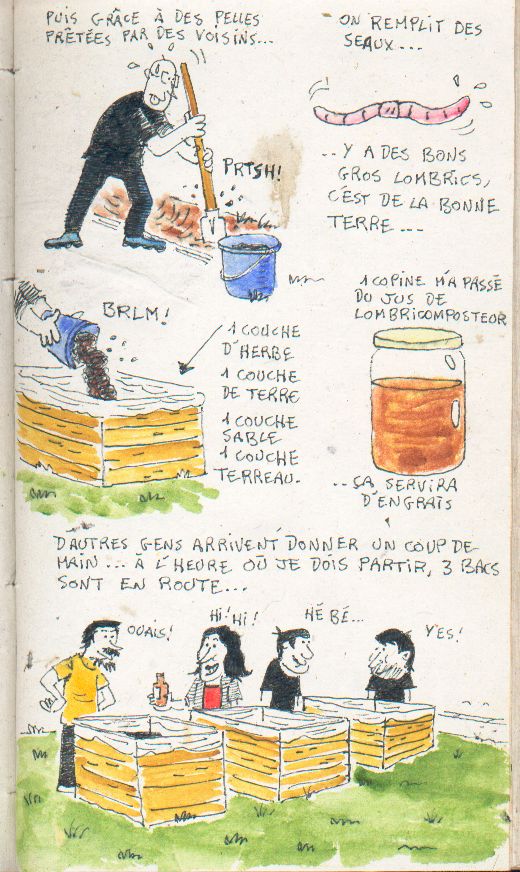 PUIS GRÂCE À DES PELLES
PRÊTÉES PAR DES VOISINS...
ON REMPLIT DES
SEAUX...
PRTSH!
...Y A DES BONS
GROS LOMBRICS,
C'EST DE LA BONNE
TERRE...
BRLM!
1 COUCHE
D'HERBE
1 COUCHE
DE TERRE
1 COUCHE
SABLE
1 COUCHE
TERREAU.
1 COPINE M'A PASSÉ
DU JUS DE
LOMBRICOMPOSTEUR
...ÇA SERVIRA
D'ENGRAIS
D'AUTRES GENS ARRIVENT DONNER UN COUP DE
MAIN... À L'HEURE OÙ JE DOIS PARTIR, 3 BACS
SONT EN ROUTE...
OUAIS!
HI! HI!
HÉ BÉ...
YES!